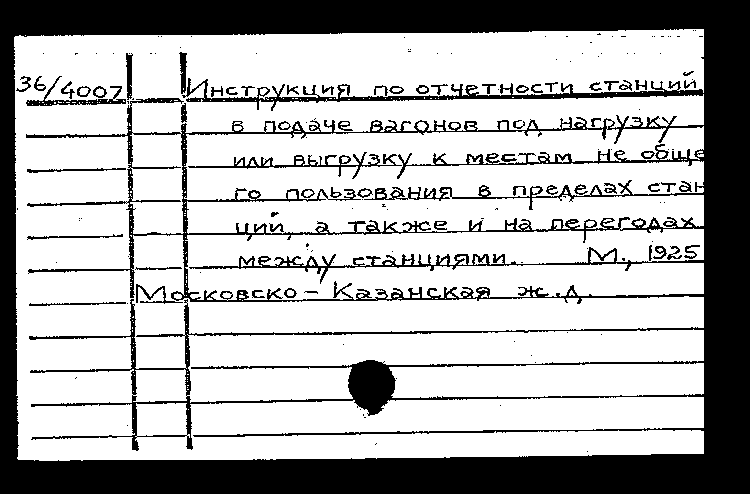 36/4007 Инструкция по отчетности станций
в подаче вагонов под нагрузку
или выгрузку к местам не обще
го пользования в пределах стан
ций, а также и на перегодах
между станциями. М., 1925
Московско-Казанская ж.д.